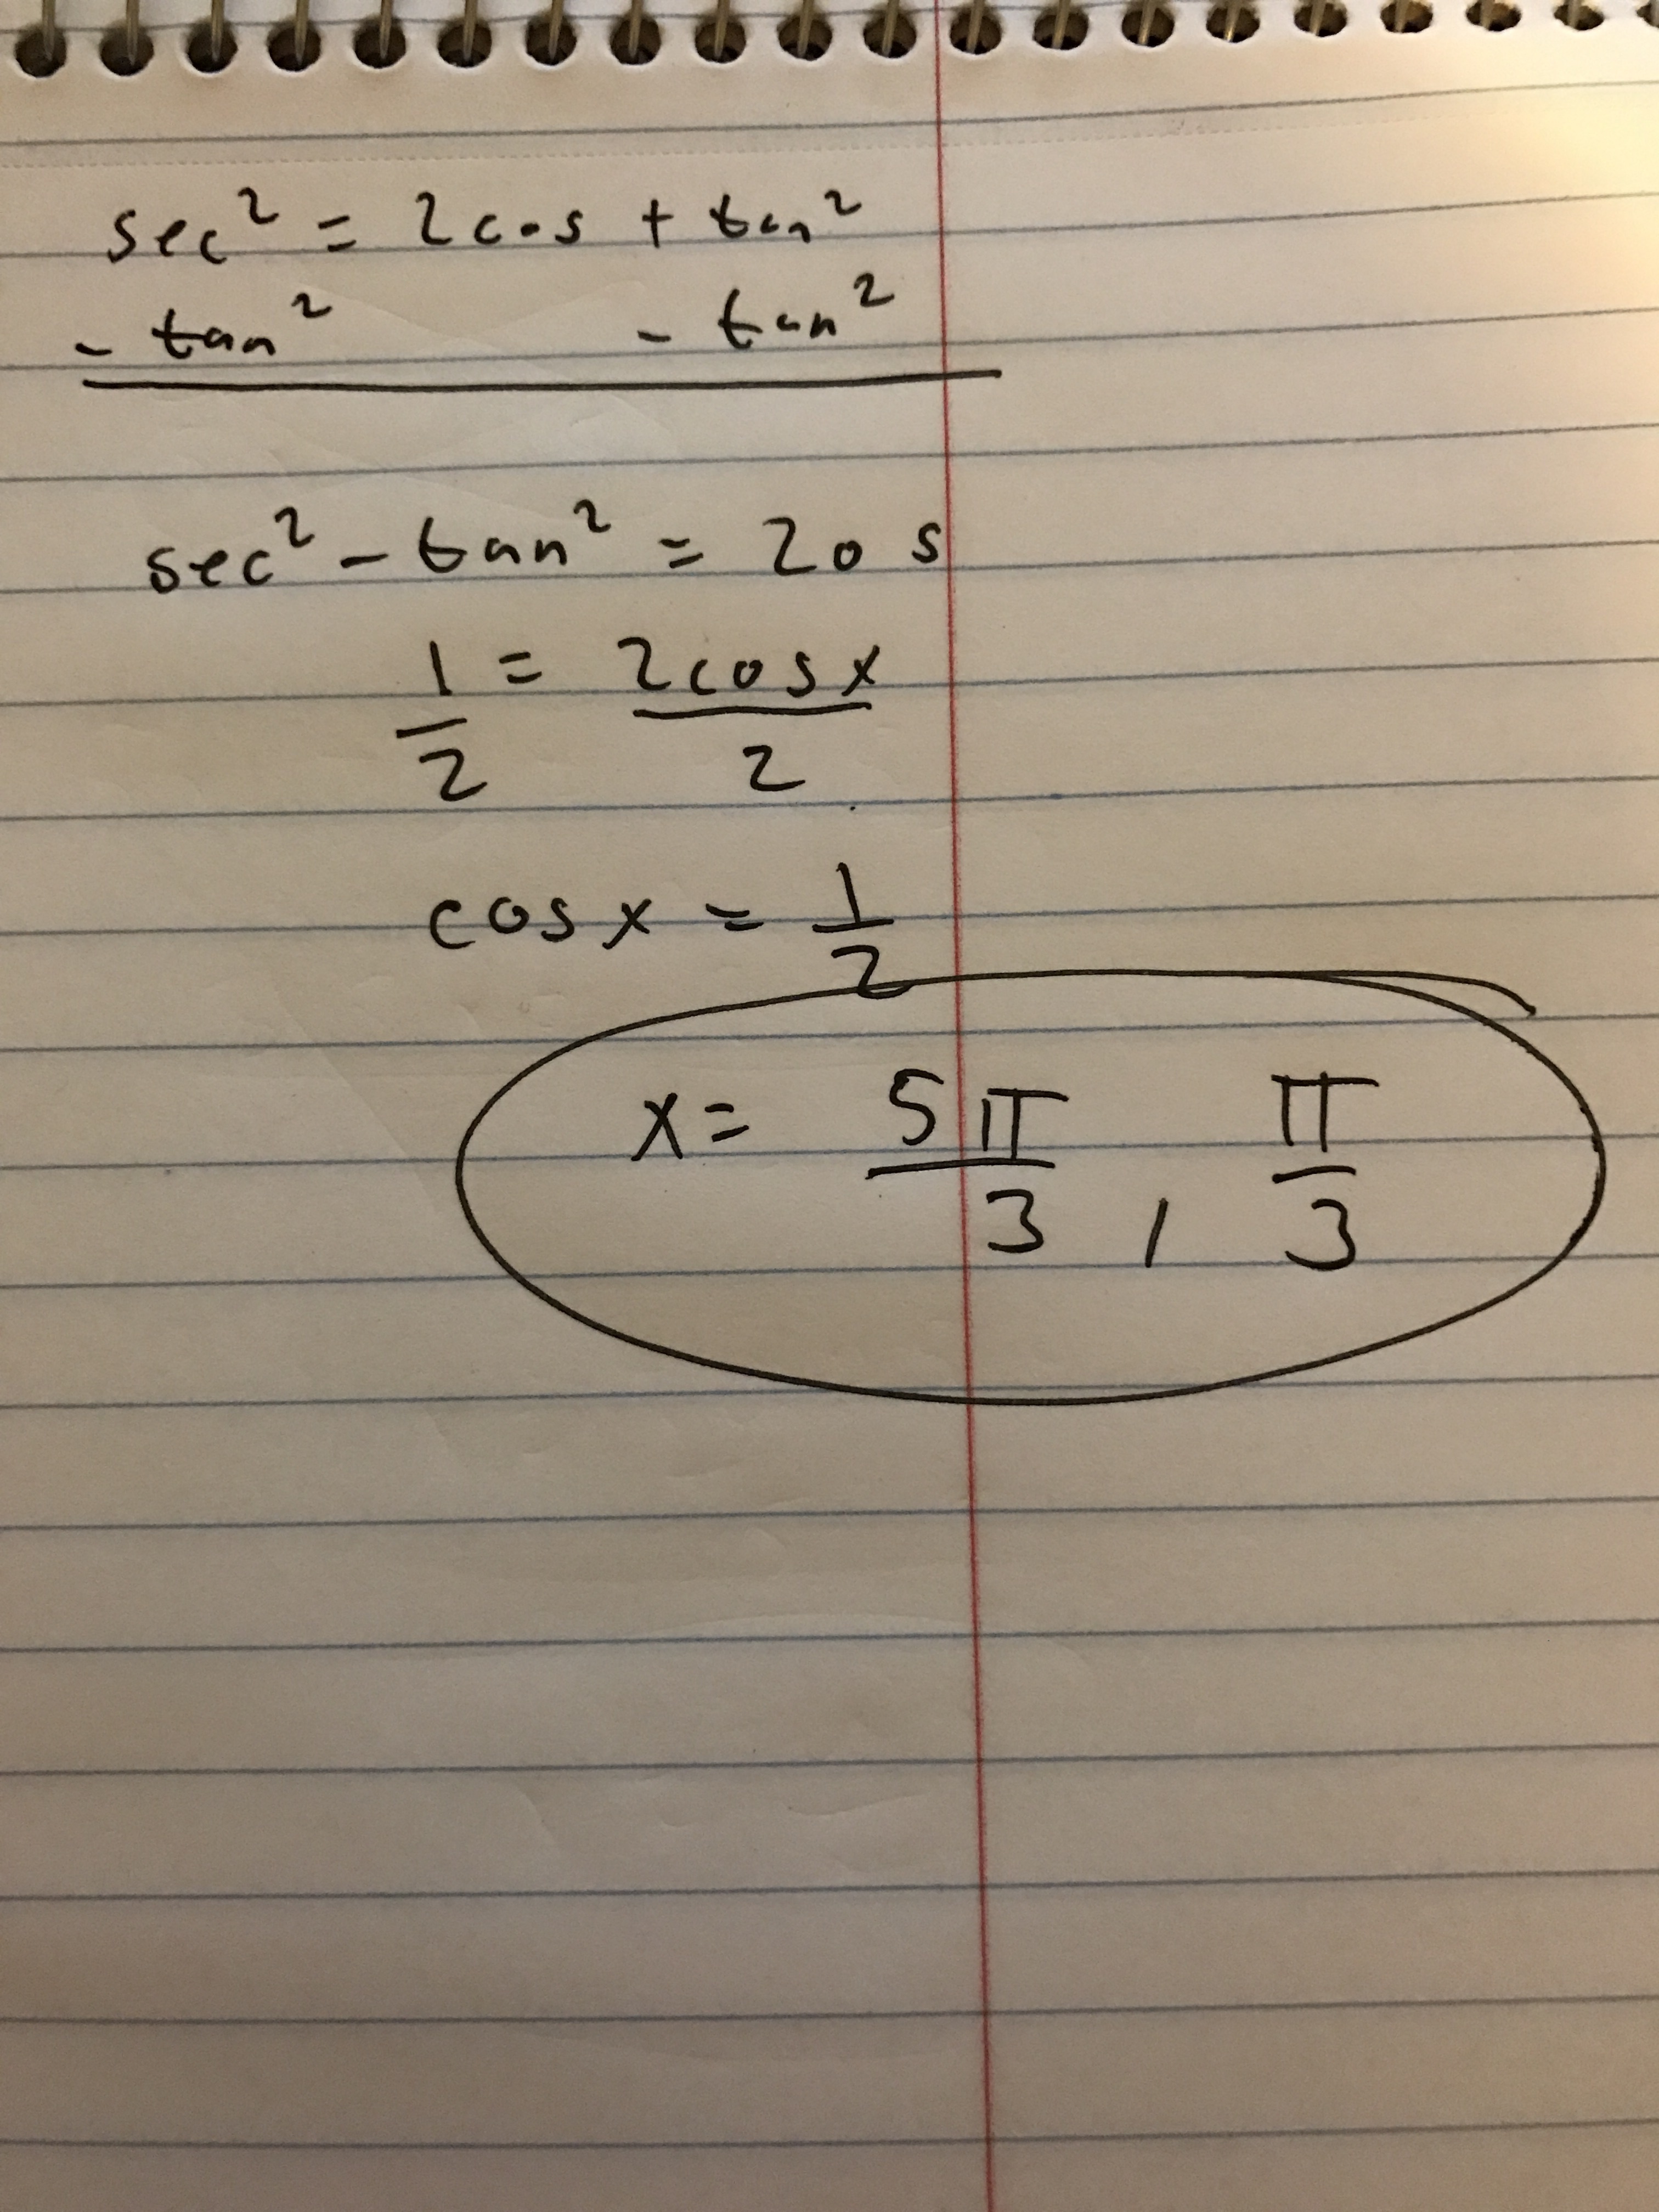 sec² = 2cos + tan²
- tan² - tan²
sec² - tan² = 2os
1/2 = 2cosx/2
cosx = 1/2
x = 5π/3 , π/3